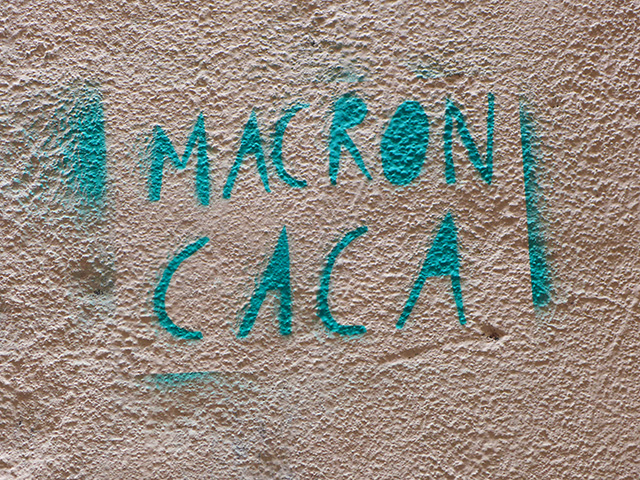 MACRON
CACA